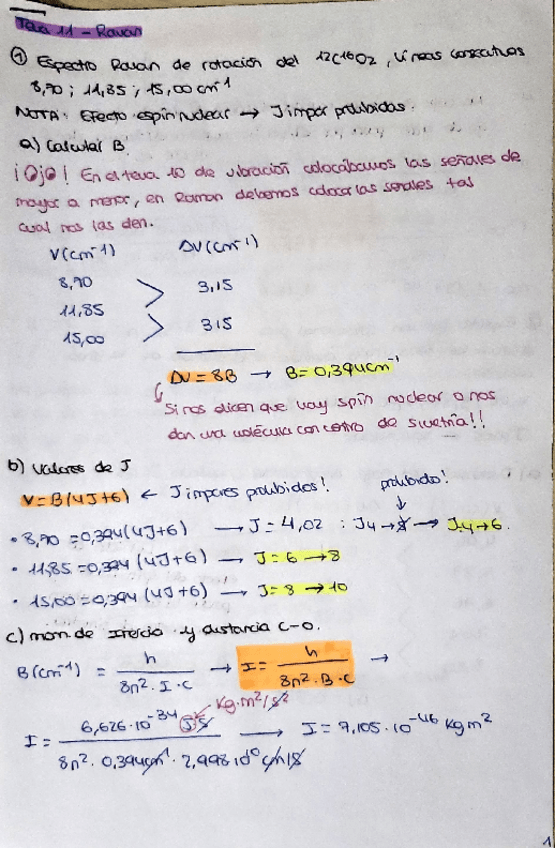 Tema 11 - Raman
① Espectro Raman de rotación del 12C16O2, líneas consecutivas
8,70 ; 11,85 ; 15,00 cm⁻¹
NOTA: Efecto espín nuclear → J impar prohibidas.
a) Calcular B
¡Ojo! En el tema 10 de vibración colocábamos las señales de
mayor a menor, en Raman debemos colocar las señales tal
cual nos las den.
V(cm⁻¹) ΔV(cm⁻¹)
8,70
3,15
11,85
3,15
15,00
ΔV = 8B → B = 0,394 cm⁻¹
Si nos dicen que hay spin nuclear o nos
dan una molécula con centro de simetría!!
b) Valores de J
V = B(4J+6) ← J impares prohibidos! prohibido!
• 8,70 = 0,394(4J+6) → J = 4,02 : J4 → J → J.4 → 6.
• 11,85 = 0,394 (4J+6) → J = 6 → 8
• 15,00 = 0,394 (4J+6) → J = 8 → 10
c) mom de Inercia y distancia C-O.
B(cm⁻¹) = h / 8π²·I·c → I = h / 8π²·B·c →
I = 6,626·10⁻³⁴ J·s / 8π²·0,394 cm⁻¹·2,998·10¹⁰ cm/s → I = 7,105·10⁻⁴⁶ Kg m²
Kg·m²/s²
1